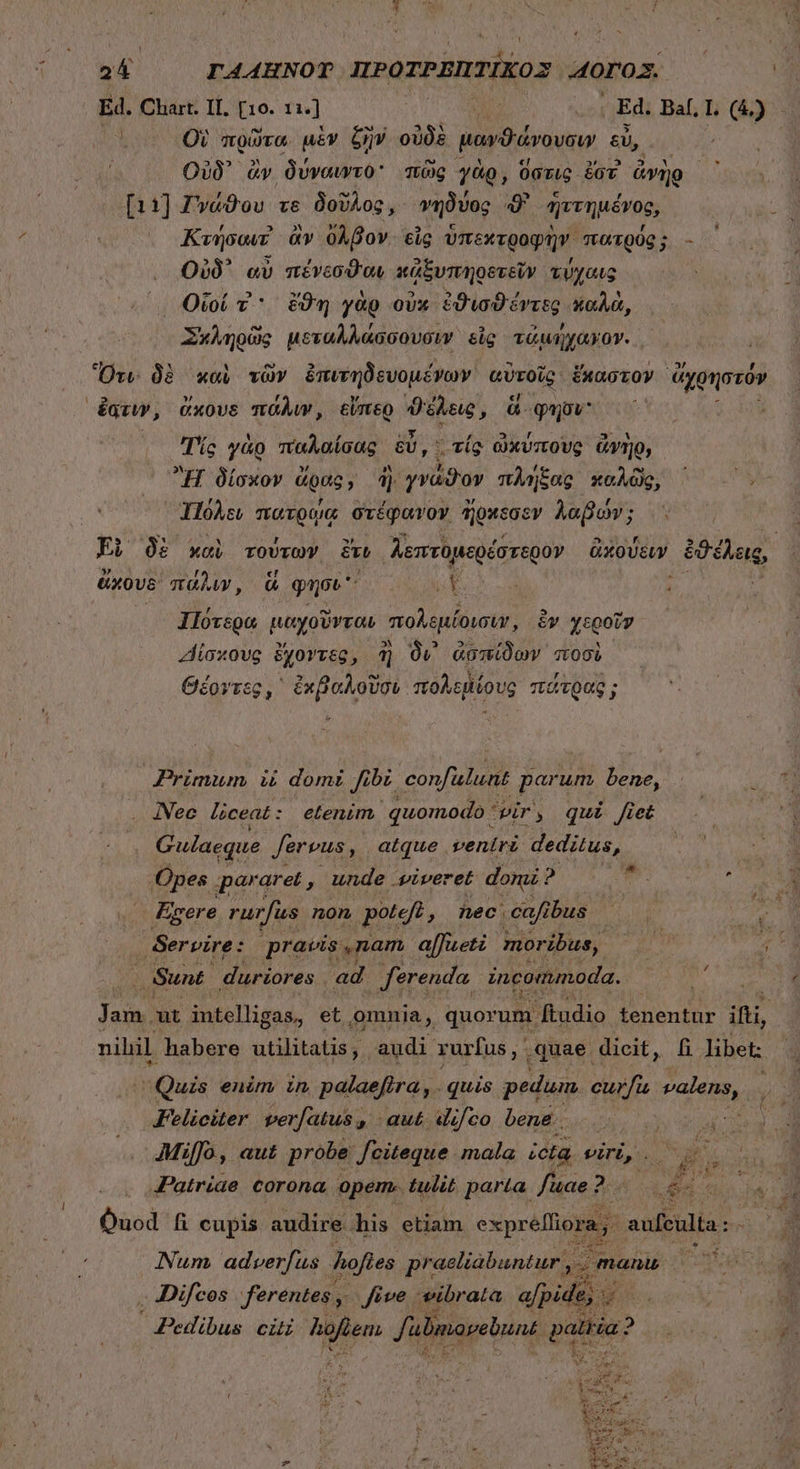 24 ΓΑΛΗΝΟΥ ΠΡΟΤΡΕΠΤΙΚΟΣ ΛΟΓΟΣ.
Ed. Chart. II. [10. 11.] Ed. Baſ. I. (4.)
Οἳ πρῶτα μὲν ζῆν οὐδὲ μανθάνουσιν εὖ,
Οὐδ᾽ ἂν δύναιντο· πῶς γὰρ, ὅστις ἔστ᾽ ἀνὴρ
[11] Γνάθου τε δοῦλος, νηδύος θ᾽ ἡττημένος,
Κτήσαιτ᾽ ἂν ὄλβον εἰς ὑπεκτροφὴν πατρός;
Οὐδ᾽ αὖ πένεσθαι κᾀξυπηρετεῖν τύχαις
Οἷοί τ᾽· ἔθη γὰρ οὐκ ἐθισθέντες καλὰ,
Σκληρῶς μεταλλάσσουσιν εἰς τἀμήχανον.
Ὅτι δὲ καὶ τῶν ἐπιτηδευομένων αὐτοῖς ἕκαστον ἄχρηστόν
ἐστιν, ἄκουε πάλιν, εἴπερ θέλεις, ἅ φησιν·
Τίς γὰρ παλαίσας εὖ, τίς ὠκύπους ἀνὴρ,
Ἢ δίσκον ἄρας, ἢ γνάθον πλήξας καλῶς,
Πόλει πατρῴᾳ στέφανον ἤρκεσεν λαβών;
Εἰ δὲ καὶ τούτων ἔτι λεπτομερέστερον ἀκούειν ἐθέλεις,
ἄκουε πάλιν, ἅ φησι·
Πότερα μαχοῦνται πολεμίοισιν, ἐν χεροῖν
Δίσκους ἔχοντες, ἢ δι᾽ ἀσπίδων ποσὶ
Θέοντες, ἐκβαλοῦσι πολεμίους πάτρας;
Primum ii domi ſibi conſulunt parum bene,
Nec liceat: etenim quomodo vir, qui ſiet
Gulaeque ſervus, atque ventri deditus,
Opes pararet, unde viveret domi?
Egere rurſus non poteſt, nec caſibus
Servire: pravis nam aſſueti moribus,
Sunt duriores ad ferenda incommoda.
Jam ut intelligas, et omnia, quorum ſtudio tenentur iſti,
nihil habere utilitatis, audi rurſus, quae dicit, ſi libet:
Quis enim in palaeſtra, quis pedum curſu valens,
Feliciter verſatus, aut diſco bene
Miſſo, aut probe ſciteque mala icta viri,
Patriae corona opem tulit parta ſuae?
Quod ſi cupis audire his etiam expreſſiora, auſculta:
Num adverſus hoſtes praeliabuntur, manu
Diſcos ferentes, ſive vibrata aſpide,
Pedibus citi hoſtem ſubmovebunt patria?